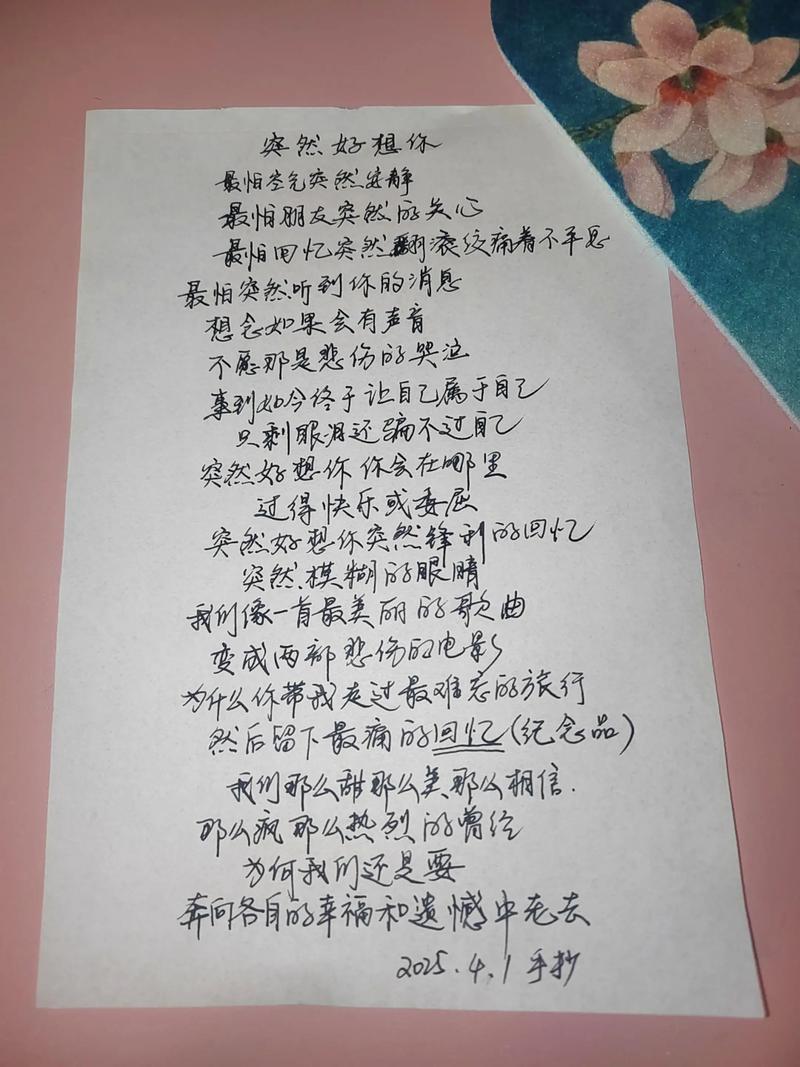 突然好想你
最怕空气突然安静
最怕朋友突然的关心
最怕回忆突然翻滚绞痛着不平息
最怕突然听到你的消息
想念如果会有声音
不愿那是悲伤的哭泣
事到如今终于让自己属于自己
只剩眼泪还骗不过自己
突然好想你你会在哪里
过得快乐或委屈
突然好想你突然锋利的回忆
突然模糊的眼睛
我们像一首最美丽的歌曲
变成两部悲伤的电影
为什么你带我走过最难忘的旅行
然后留下最痛的回忆(纪念品)
我们那么甜那么美那么相信.
那么疯那么热烈的曾经
为何我们还是要
奔向各自的幸福和遗憾中老去
2025.4.1手抄